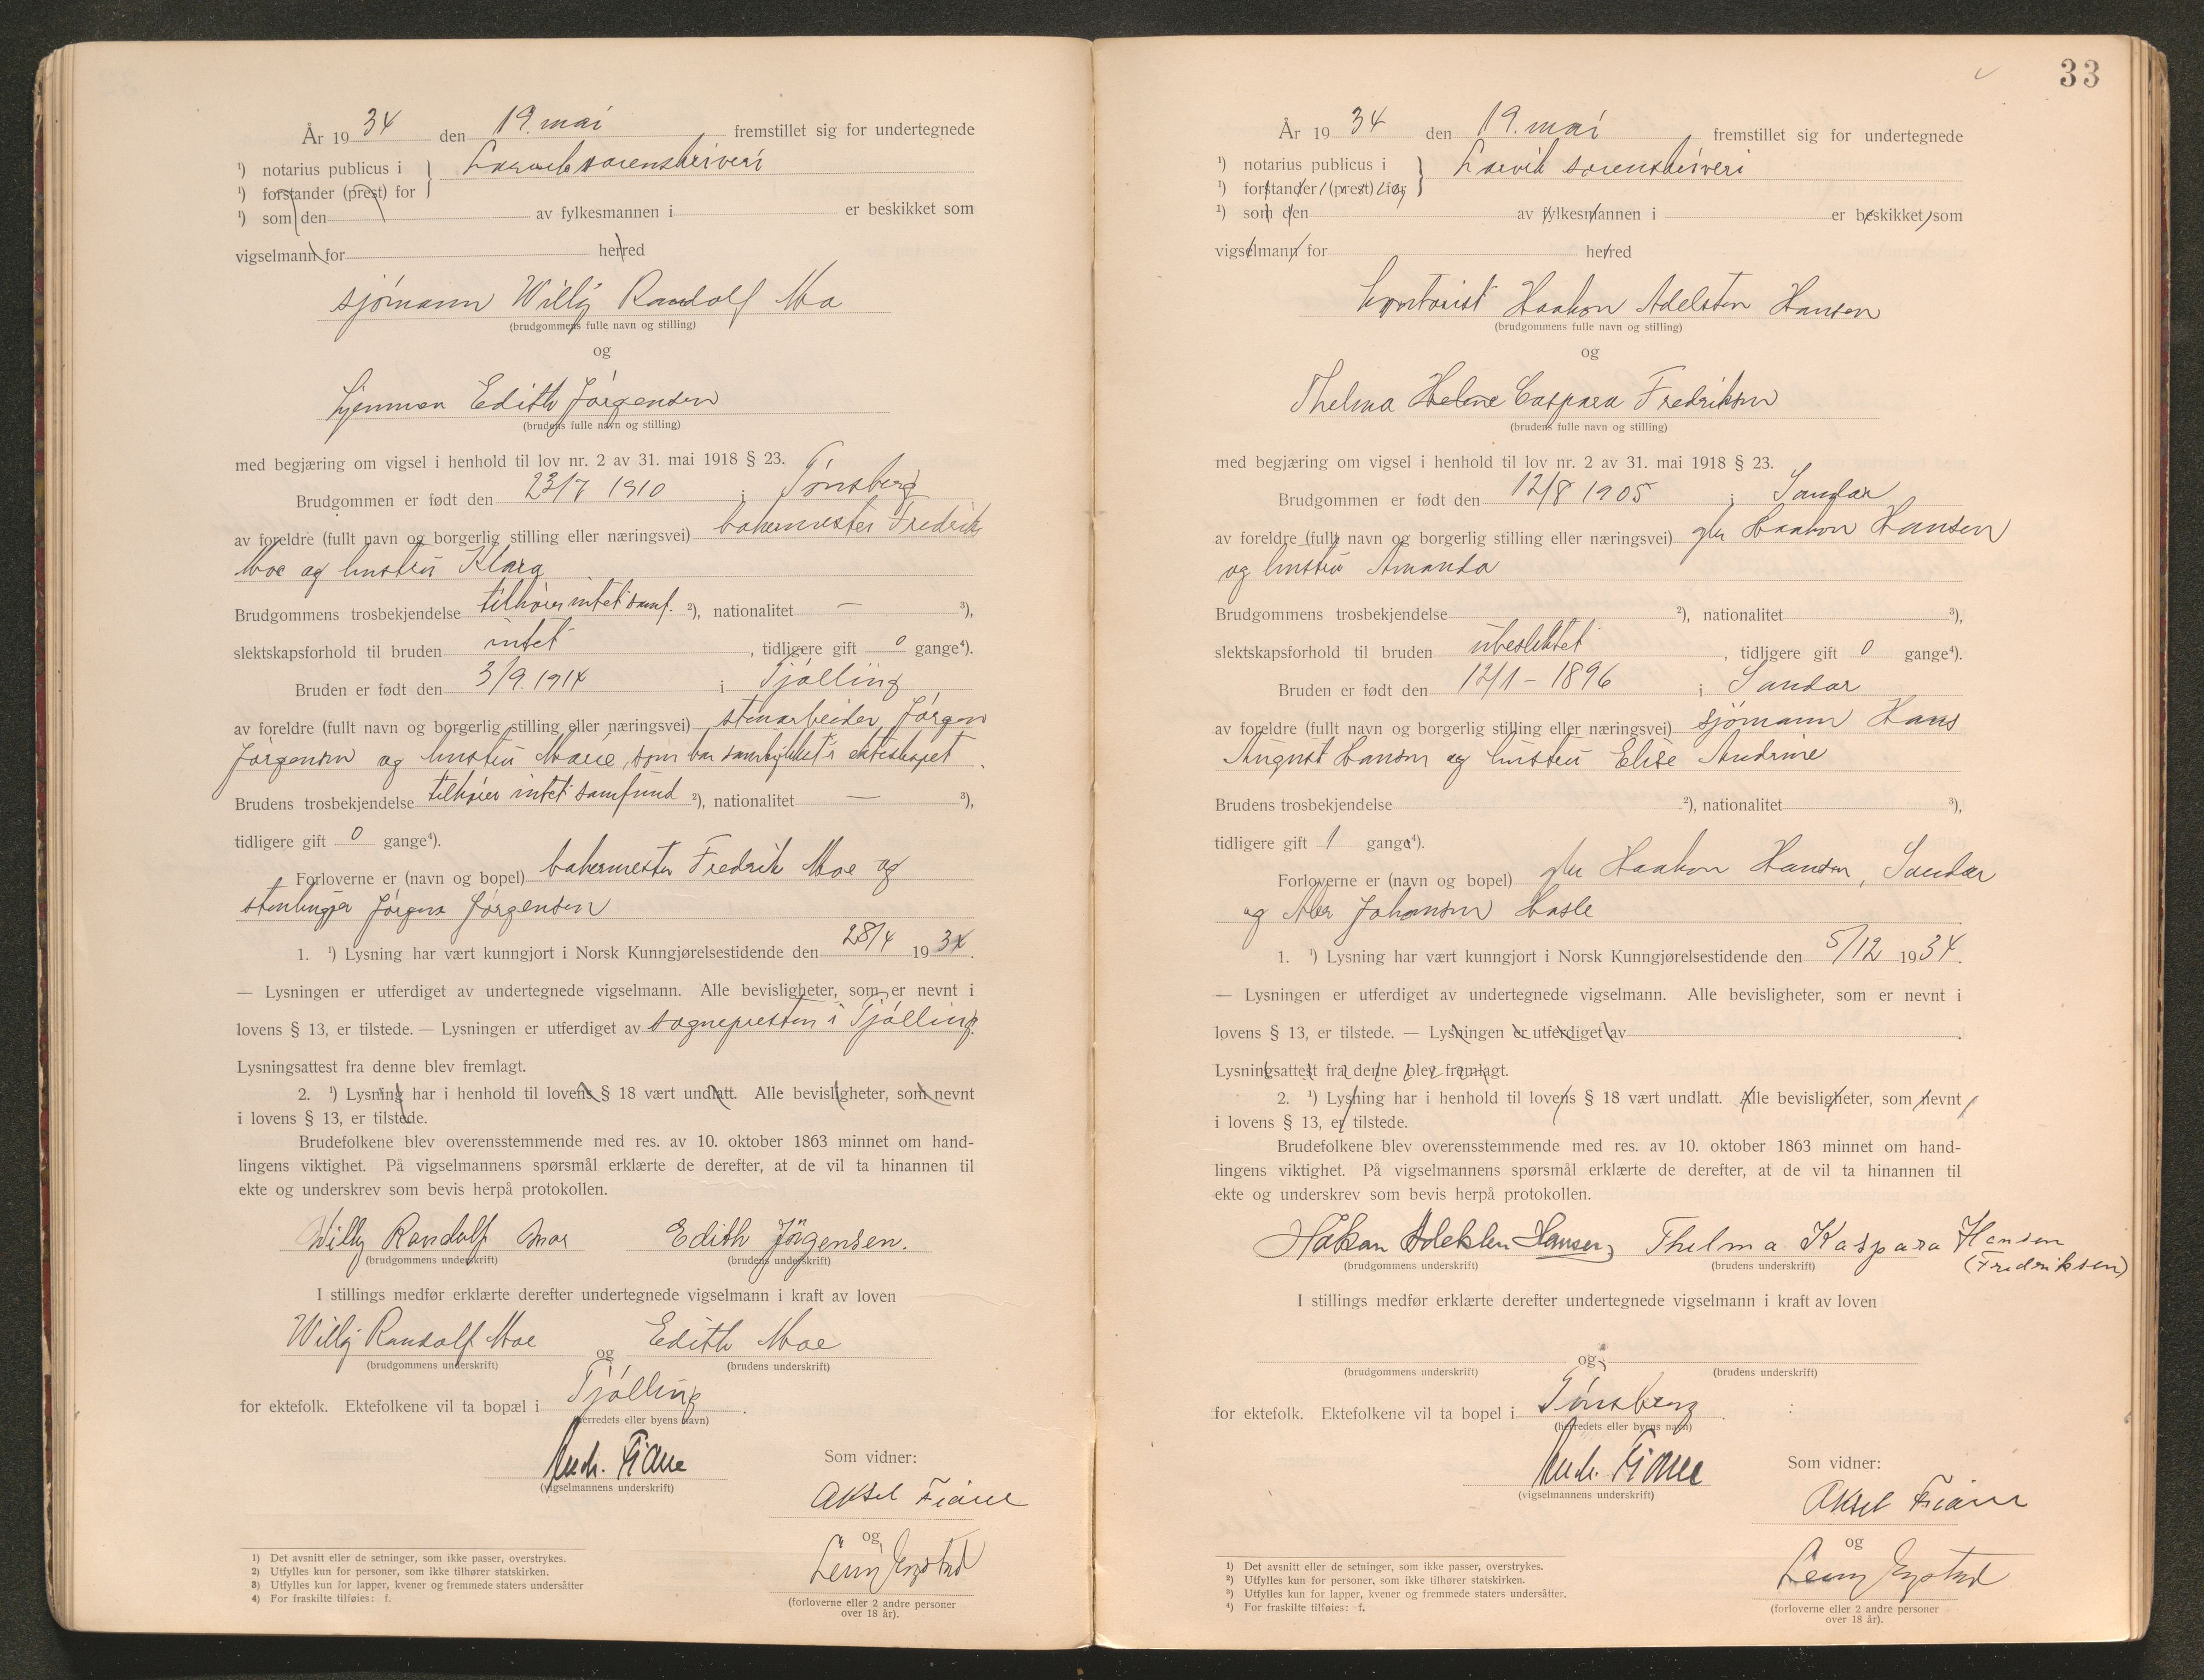 År 19 34 den 19. mai fremstillet sig for undertegnede
1) notarius publicus i Larvik sorenskriveri
1) forstander (prest) for
1) som den av fylkesmannen i er beskikket som
vigselmann for herred
sjømann Willy Randolf Moe
(brudgommens fulle navn og stilling)
og
hjemmev Edith Jørgensen
(brudens fulle navn og stilling)
med begjæring om vigsel i henhold til lov nr. 2 av 31. mai 1918 § 23.
Brudgommen er født den 23/7 1910 i Tønsberg
av foreldre (fullt navn og borgerlig stilling eller næringsvei) bakermester Fredrik
Moe og hustru Klara
Brudgommens trosbekjendelse tilhører intet samf. 2), nationalitet — 3),
slektskapsforhold til bruden intet, tidligere gift 0 gange4).
Bruden er født den 3/9. 1914 i Tjølling
av foreldre (fullt navn og borgerlig stilling eller næringsvei) stenarbeider Jørgen
Jørgensen og hustru Marie, som har samtykket i ekteskapet.
Brudens trosbekjendelse tilhører intet samfund 2), nationalitet — 3),
tidligere gift 0 gange4).
Forloverne er (navn og bopel) bakermester Fredrik Moe og
stenhugger Jørgen Jørgensen
1. 1) Lysning har vært kunngjort i Norsk Kunngjørelsestidende den 28/4 19 34.
— Lysningen er utferdiget av undertegnede vigselmann. Alle bevisligheter, som er nevnt i
lovens § 13, er tilstede. — Lysningen er utferdiget av sognepresten i Tjølling.
Lysningsattest fra denne blev fremlagt.
2. 1) Lysning har i henhold til lovens § 18 vært undlatt. Alle bevisligheter, som nevnt
i lovens § 13, er tilstede.
Brudefolkene blev overensstemmende med res. av 10. oktober 1863 minnet om hand-
lingens viktighet. På vigselmannens spørsmål erklærte de derefter, at de vil ta hinannen til
ekte og underskrev som bevis herpå protokollen.
Willy Randolf Moe Edith Jørgensen.
(brudgommens underskrift) (brudens underskrift)
I stillings medfør erklærte derefter undertegnede vigselmann i kraft av loven
Willy Randolf Moe og Edith Moe
(brudgommens underskrift) (brudens underskrift)
for ektefolk. Ektefolkene vil ta bopæl i Tjølling.
(herredets eller byens navn)
Andr. Fiane
(vigselmannens underskrift)
Som vidner:
Aksel Fiane
og
(forloverne eller 2 andre personer
over 18 år).
1) Det avsnitt eller de setninger, som ikke passer, overstrykes.
2) Utfylles kun for personer, som ikke tilhører statskirken.
3) Utfylles kun for lapper, kvener og fremmede staters undersåtter
4) For fraskilte tilføies: f.
33
År 19 34 den 19. mai, fremstillet sig for undertegnede
1) notarius publicus i Larvik sorenskriveri
1) forstander (prest) for
1) som den av fylkesmannen i er beskikket som
vigselmann for herred
kontorist Haakon Adelsten Hansen
(brudgommens fulle navn og stilling)
og
Thelma Helene Caspara Fredriksen
(brudens fulle navn og stilling)
med begjæring om vigsel i henhold til lov nr. 2 av 31. mai 1918 § 23.
Brudgommen er født den 12/8 1905 i Sandar
av foreldre (fullt navn og borgerlig stilling eller næringsvei) Haakon Hansen
og hustru Amanda
Brudgommens trosbekjendelse 2), nationalitet 3),
slektskapsforhold til bruden ubeslektet, tidligere gift 0 gange4).
Bruden er født den 12/1 - 1896 i Sandar
av foreldre (fullt navn og borgerlig stilling eller næringsvei) sjømann Hans
August Hansen og hustru Elise Andrine
Brudens trosbekjendelse 2), nationalitet 3),
tidligere gift 1 gange4).
Forloverne er (navn og bopel) Haakon Hansen, Sandar
og Johansen Hasle
1. 1) Lysning har vært kunngjort i Norsk Kunngjørelsestidende den 5/12 19 34.
— Lysningen er utferdiget av undertegnede vigselmann. Alle bevisligheter, som er nevnt i
lovens § 13, er tilstede. — Lysningen er utferdiget av
Lysningsattest fra denne blev fremlagt.
2. 1) Lysning har i henhold til lovens § 18 vært undlatt. Alle bevisligheter, som nevnt
i lovens § 13, er tilstede.
Brudefolkene blev overensstemmende med res. av 10. oktober 1863 minnet om hand-
lingens viktighet. På vigselmannens spørsmål erklærte de derefter, at de vil ta hinannen til
ekte og underskrev som bevis herpå protokollen.
Håkon Adelsten Hansen Thelma Kaspara Hansen
(Fredriksen)
(brudgommens underskrift) (brudens underskrift)
I stillings medfør erklærte derefter undertegnede vigselmann i kraft av loven
og
(brudgommens underskrift) (brudens underskrift)
for ektefolk. Ektefolkene vil ta bopel i Tønsberg.
(herredets eller byens navn)
Andr. Fiane
(vigselmannens underskrift)
Som vidner:
Aksel Fiane
og
(forloverne eller 2 andre personer
over 18 år).
1) Det avsnitt eller de setninger, som ikke passer, overstrykes.
2) Utfylles kun for personer, som ikke tilhører statskirken.
3) Utfylles kun for lapper, kvener og fremmede staters undersåtter.
4) For fraskilte tilføies: f.